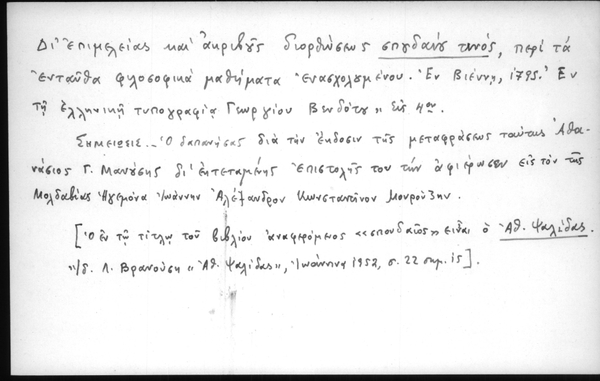 Δι' ἐπιμελείας καὶ ἀκριβοῦς διορθώσεως σπουδαίου τινός, περί τά
ἐνταῦθα φιλοσοφικά μαθήματα ἐνασχολουμένου. Ἐν Βιέννῃ, 1795. Ἐν
τῇ ἑλληνικῇ τυπογραφίᾳ Γεωργίου Βενδότου» εἰς 4ον.
Σημείωσις.- Ὁ δαπανήσας διὰ τὴν ἔκδοσιν τῆς μεταφράσεως ταύτης Ἀθα-
νάσιος Γ. Μανούσης δι' ἐκτεταμένης ἐπιστολῆς του τὴν ἀφιέρωσεν εἰς τὸν τῆς
Μολδαβίας Ἡγεμόνα Ἰωάννην Ἀλέξανδρον Κωνσταντῖνον Μουρούζην.
[Ὁ ἐν τῷ τίτλῳ τοῦ βιβλίου ἀναφερόμενος «σπουδαῖος» εἶναι ὁ Ἀθ. Ψαλίδας.
Λ. Βρανούση «Ἀθ. Ψαλίδας», Ἰωάννινα 1952, σ. 22 σημ. 15].